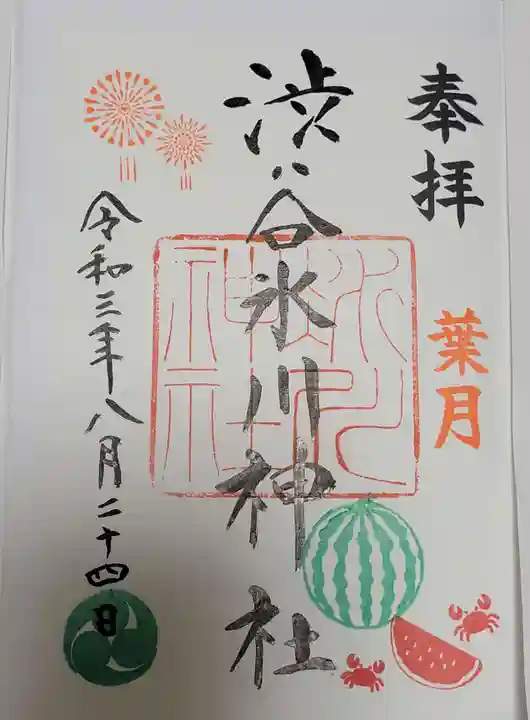 奉拝
葉月
渋谷氷川神社
氷川
神社
令和三年八月二十四日